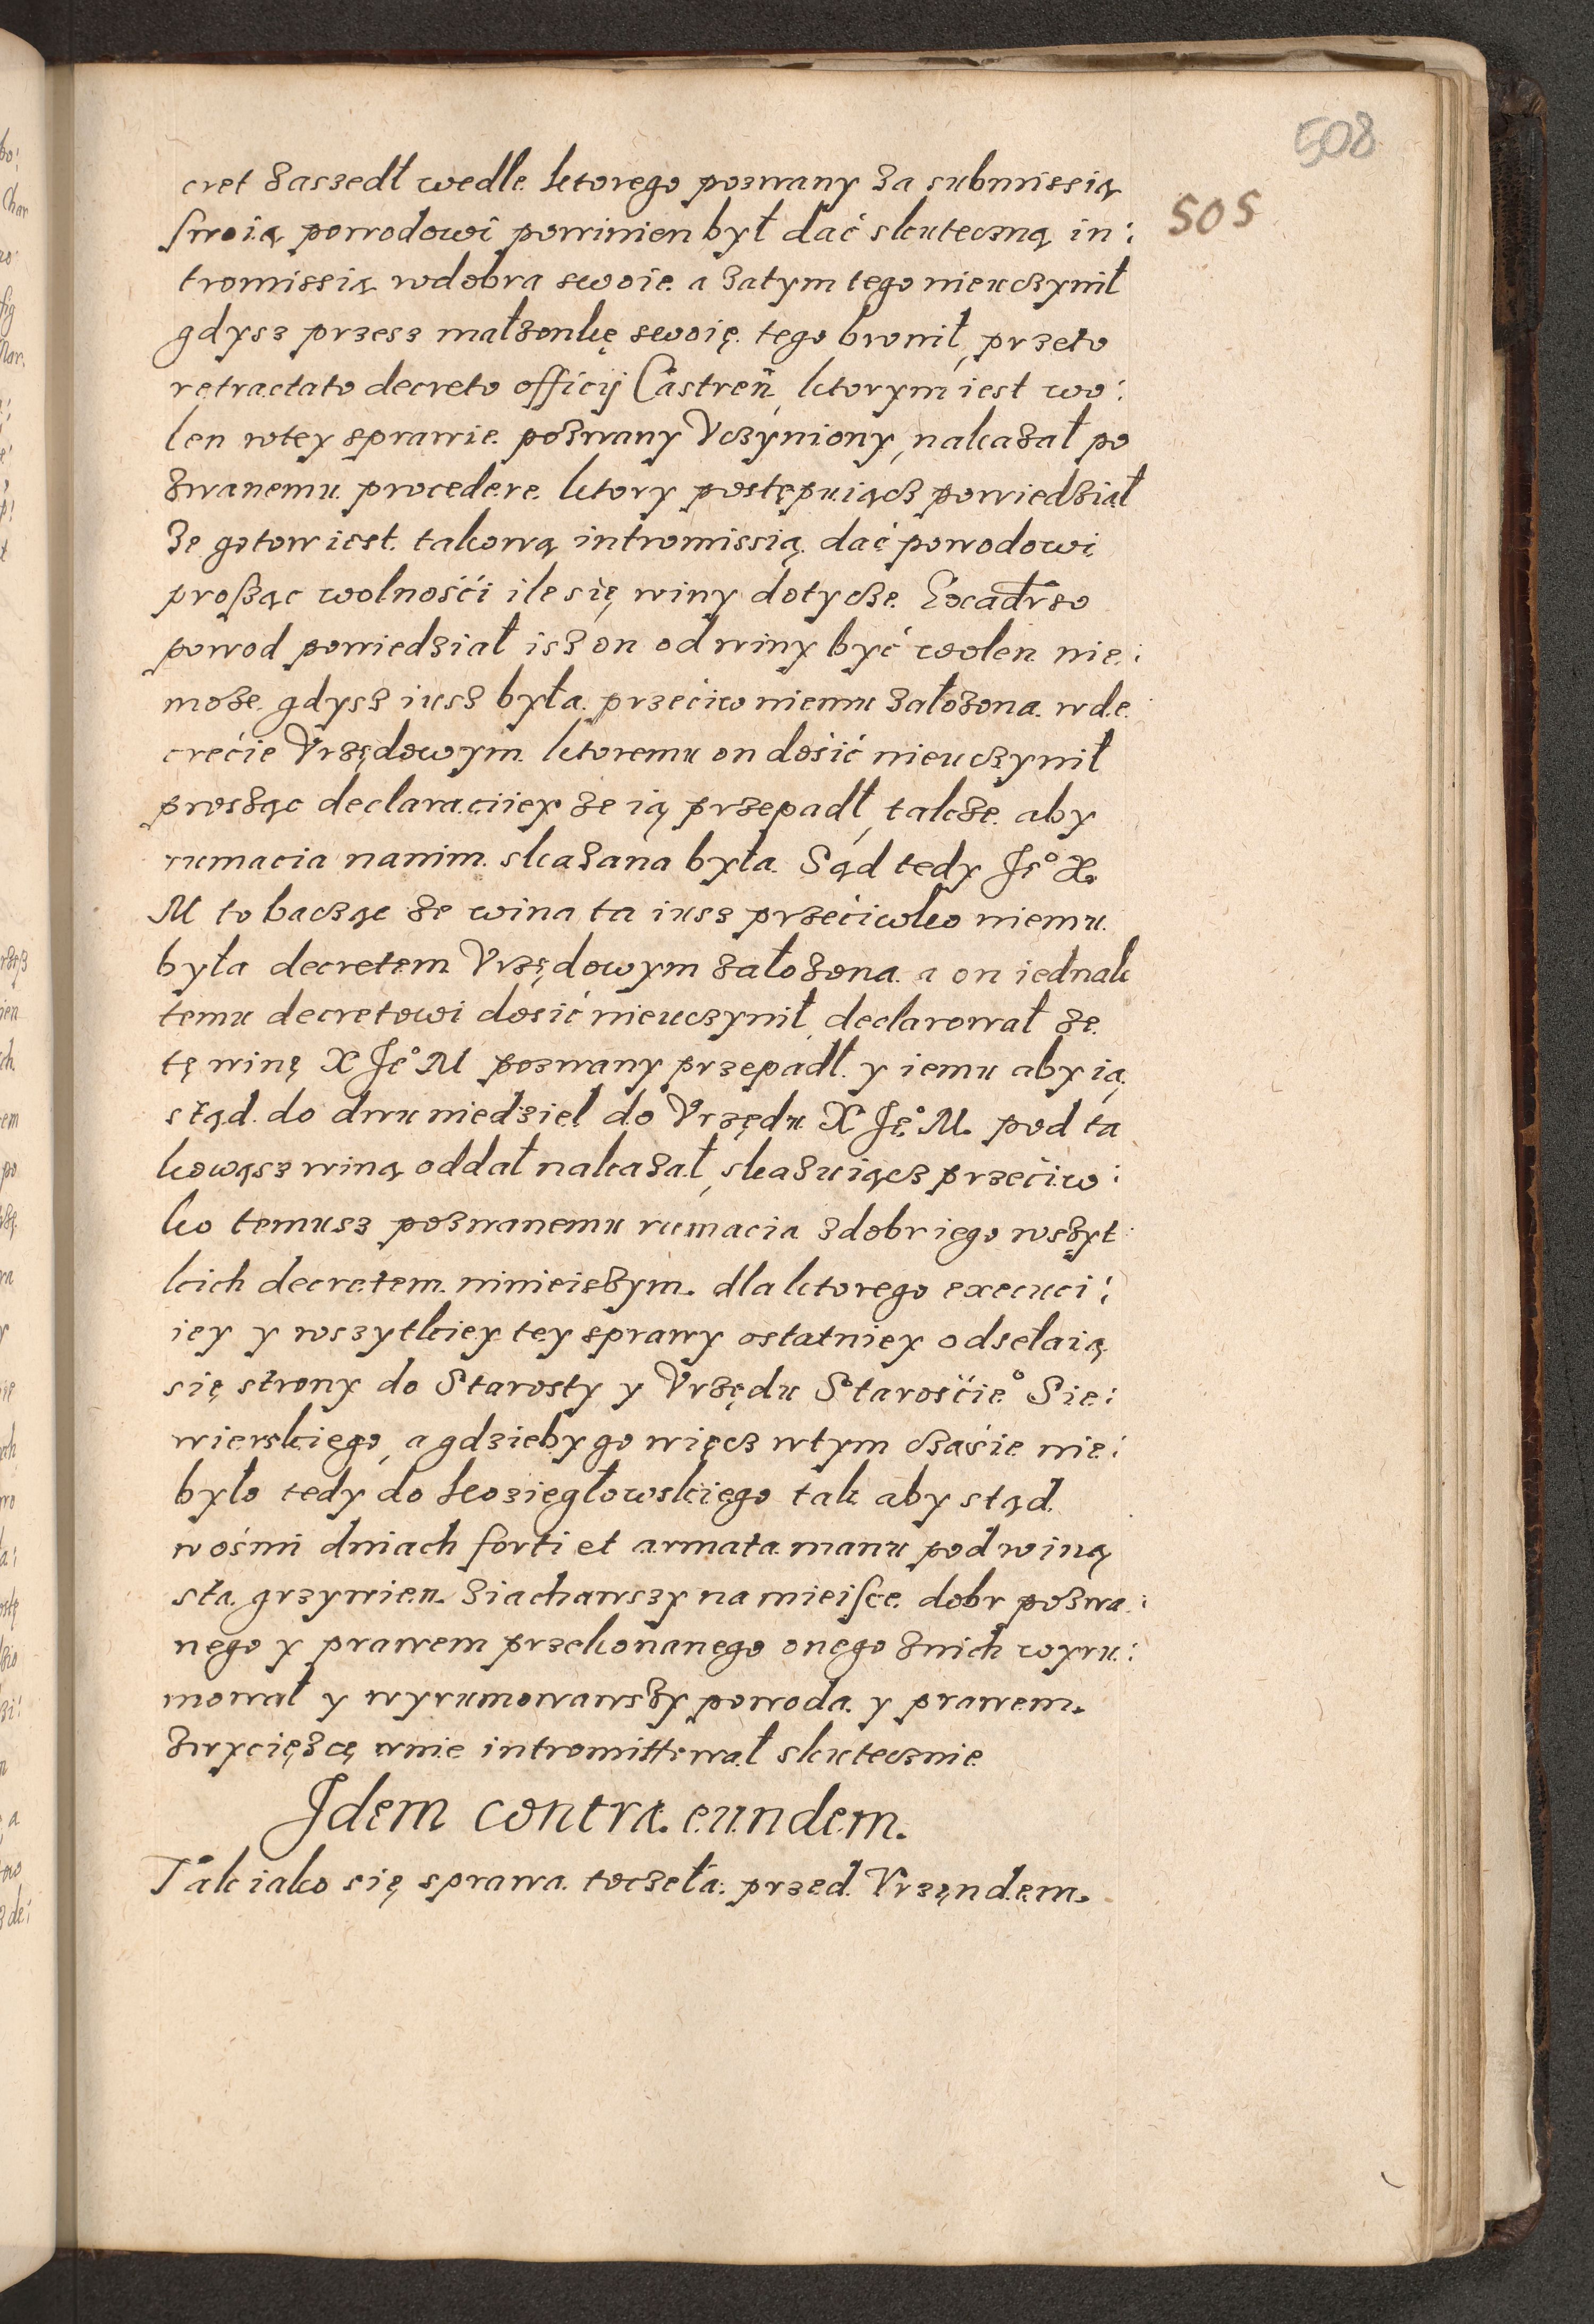 508
505
cret zaszedł wedle ktorego pozwany za submissią
swoią powodowi powinien był dać skuteczną in:
tromissią wdobra swoie a zatym tego nieuczynił
gdysz przesz małzonkę swoię tego bronił, przeto
retractato decreto officij Castreñ, ktorym iest wo:
len wtey sprawie pozwany Vczyniony, nakazał po
zwanemu procedere ktory postępuiącz powiedział
ze gotow iest takową intromissią dać powodowi
proßąc wolnośći ile się winy dotycze
powod powiedział isz on od winy być wolen nie:
może gdysz iusz była przećiw niemu załozona wde
crećie Vrzędowym ktoremu on dosić nieuczynił
prosząc declaraciiey ze ią przepadł, takze aby
rumacia nanim skazana była Sąd tedy Je° X.
M to bacząc ze wina ta iusz przećiwko niemu
była decretem Vrzędowym załozona a on iednak
temu decretowi dosić nieuczynił, declarował ze
tę winę X Je° M pozwany przepadł y iemu aby ią
stąd do dwu niedziel do Vrzędu X Je° M. pod ta
kowąsz winą oddał nakazał, skazuiącz przećiw:
ko temusz pozwanemu rumacia zdobr iego wszyt
kich decretem ninieiszym. dla ktorego execuci:
iey y wszytkiey tey sprawy ostatniey odsełaią
się strony do Starosty y Vrzędu Starośćie° Sie:
wierskiego, a gdzieby go więcz wtym czaśie nie:
było tedy do Koziegłowskiego tak aby stąd
wośmi dniach forti et armata manu pod winą
sta grzywien ziachawszy na mieisce dobr pozwa:
nego y prawem przekonanego onego znich wyru:
mował y wyrumowawszy powoda y prawem
zwyciężcę wnie intromittował skutecznie
Idem contra eundem.
Tak iako się sprawa toczeła przed Vrzęndem.